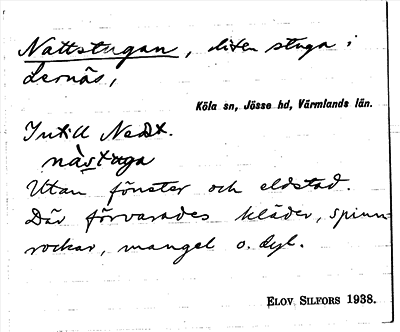 Nattstugan, liten stuga i
Lernäs,
Köla sn, Jösse hd, Värmlands län.
Intill
nàstuga
Utan fönster och eldstad.
Där förvarades kläder, spinn-
rockar, mangel o. dyl.
ELOV SILFORS 1938.